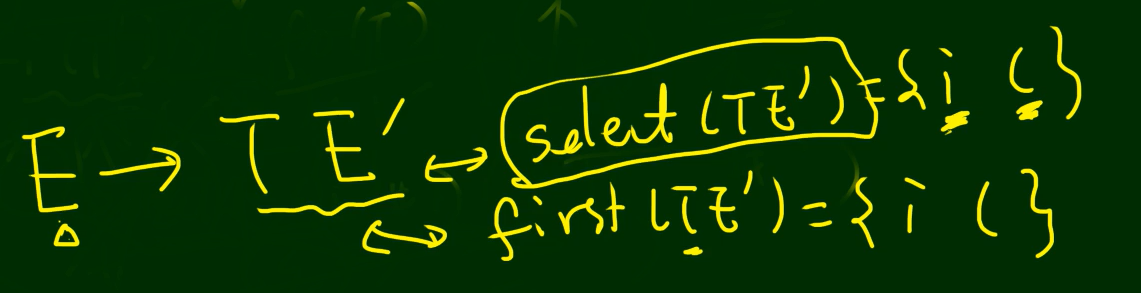 E → T E' ↔ select (TE') = {i (}
↔ first (TE') = {i (}